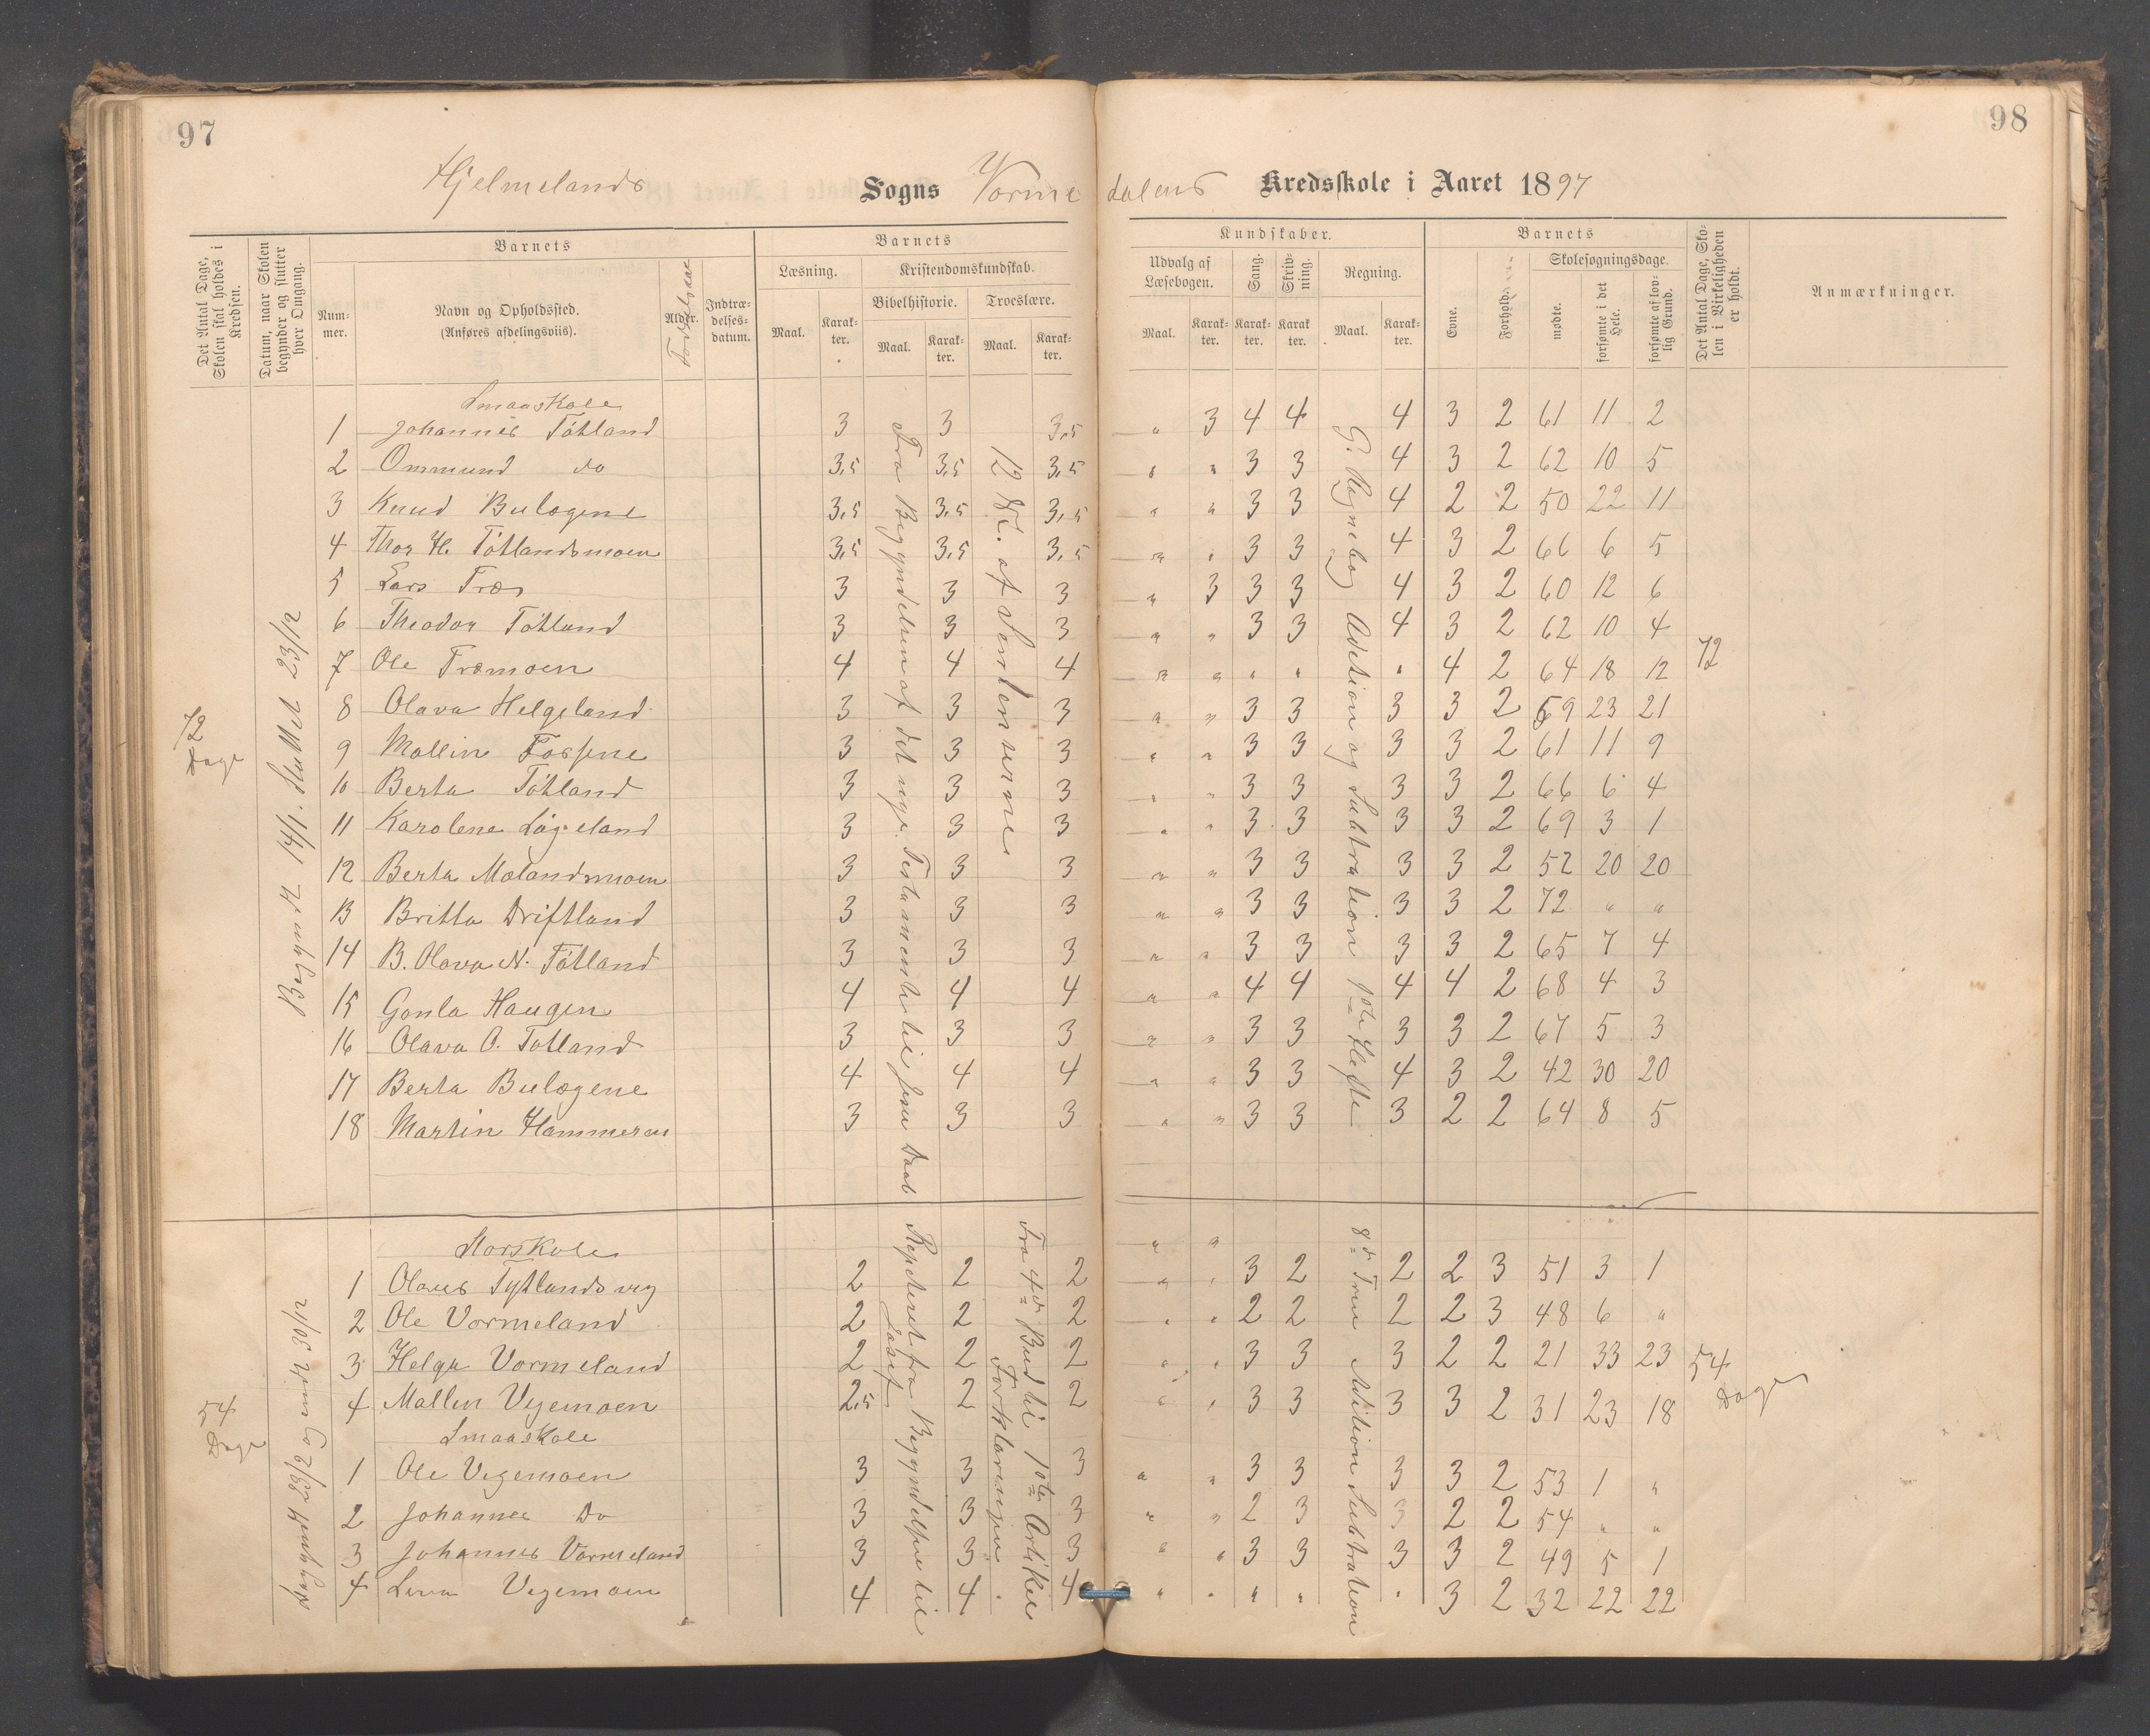 97
98
Hjelmelands Sogns Vorme dalens Kredsskole i Aaret 1897
Det Antal Dage, Skolen skal holdes i Kredsen.
Datum, naar Skolen begynder og slutter hver Omgang.
Barnets
Num-mer.
Navn og Opholdssted.
(Anføres afdelingsviis).
Alder.
Indtræ-delses-datum.
Barnets
Læsning.
Maal.
Karak-ter.
Kristendomskundskab.
Bibelhistorie.
Maal.
Karak-ter.
Troeslære.
Maal.
Karak-ter.
Kundskaber.
Udvalg af Læsebogen.
Maal.
Karak-ter.
Sang.
Karak-ter.
Skriv-ning.
Karak ter.
Regning.
Maal.
Karak-ter.
Barnets
Evne.
Forhold.
Skolesøgningsdage.
mødte.
forsømte i det Hele.
forsømte af lov-lig Grund.
Det Antal Dage, Sko-len i Virkeligheden er holdt.
Anmærkninger.
72 Dage
Begyndt 14/1. Sluttet 23/12
Fra Begyndelsen af det nye Testamente til Jesu Daab
G. Regnebog Adition og Subtration 1ste Hefte
72
Smaaskole
1 Johannes Tøtland 3 3 3,5 " 3 4 4 4 3 2 61 11 2
2 Ommund do 3,5 3,5 3,5 " " 3 3 4 3 2 62 10 5
3 Knud Bulægene 3,5 3,5 3,5 " " 3 3 4 2 2 50 22 11
4 Thor H. Tøtlandsmoen 3,5 3,5 3,5 " " 3 3 4 3 2 66 6 5
5 Lars Træ 3 3 3 " 3 3 3 4 3 2 60 12 6
6 Theodor Tøtland 3 3 3 " " 3 3 4 3 2 62 10 4
7 Ole Træmoen 4 4 4 " " " " " 4 2 64 18 12
8 Olava Helgeland 3 3 3 " " 3 3 3 3 2 69 23 21
9 Mallin Fossene 3 3 3 " " 3 3 3 3 2 61 11 9
10 Berta Tøtland 3 3 3 " " 3 3 3 3 2 66 6 4
11 Karolene Løgeland 3 3 3 " " 3 3 3 3 2 69 3 1
12 Berta Mælandsmoen 3 3 3 " " 3 3 3 3 2 52 20 20
13 Britta Driftland 3 3 3 " " 3 3 3 3 2 72 " "
14 B. Olava N. Tøtland 3 3 3 " " 3 3 3 3 2 65 7 4
15 Gonla Haugen 4 4 4 " " 4 4 4 4 2 68 4 3
16 Olava O. Tøtland 3 3 3 " " 3 3 3 3 2 67 5 3
17 Berta Bulægene 4 4 4 " " 3 3 4 3 2 42 30 20
18 Martin Hammeren 3 3 3 " " 3 3 3 2 2 64 8 5
54 Dage
Repeteret fra Begyndelsen til Josef
Fra 4de Bud til 1ste Artikel Forklaringen
8de Trin Adition Subtration
54 Dage
Storskole " "
1 Olaus Tytlandsvig 2 2 2 " " 3 2 2 2 3 51 3 1
2 Ole Vormeland 2 2 2 " " 2 2 2 2 3 48 6 "
3 Helga Vormeland 2 2 2 " " 3 3 3 2 2 21 33 23
4 Mallin Vegemoen 2,5 2 2 " " 3 3 3 3 2 31 23 18
Smaaskole
1 Ole Vegemoen 3 3 3 " " 3 3 3 3 2 53 1 "
2 Johannes Do 3 3 3 " " 2 3 3 2 2 54 " "
3 Johannes Vormeland 3 3 3 " " 3 3 3 3 2 49 5 1
4 Lena Vegemoen 4 4 4 " " " " " 3 2 32 22 22